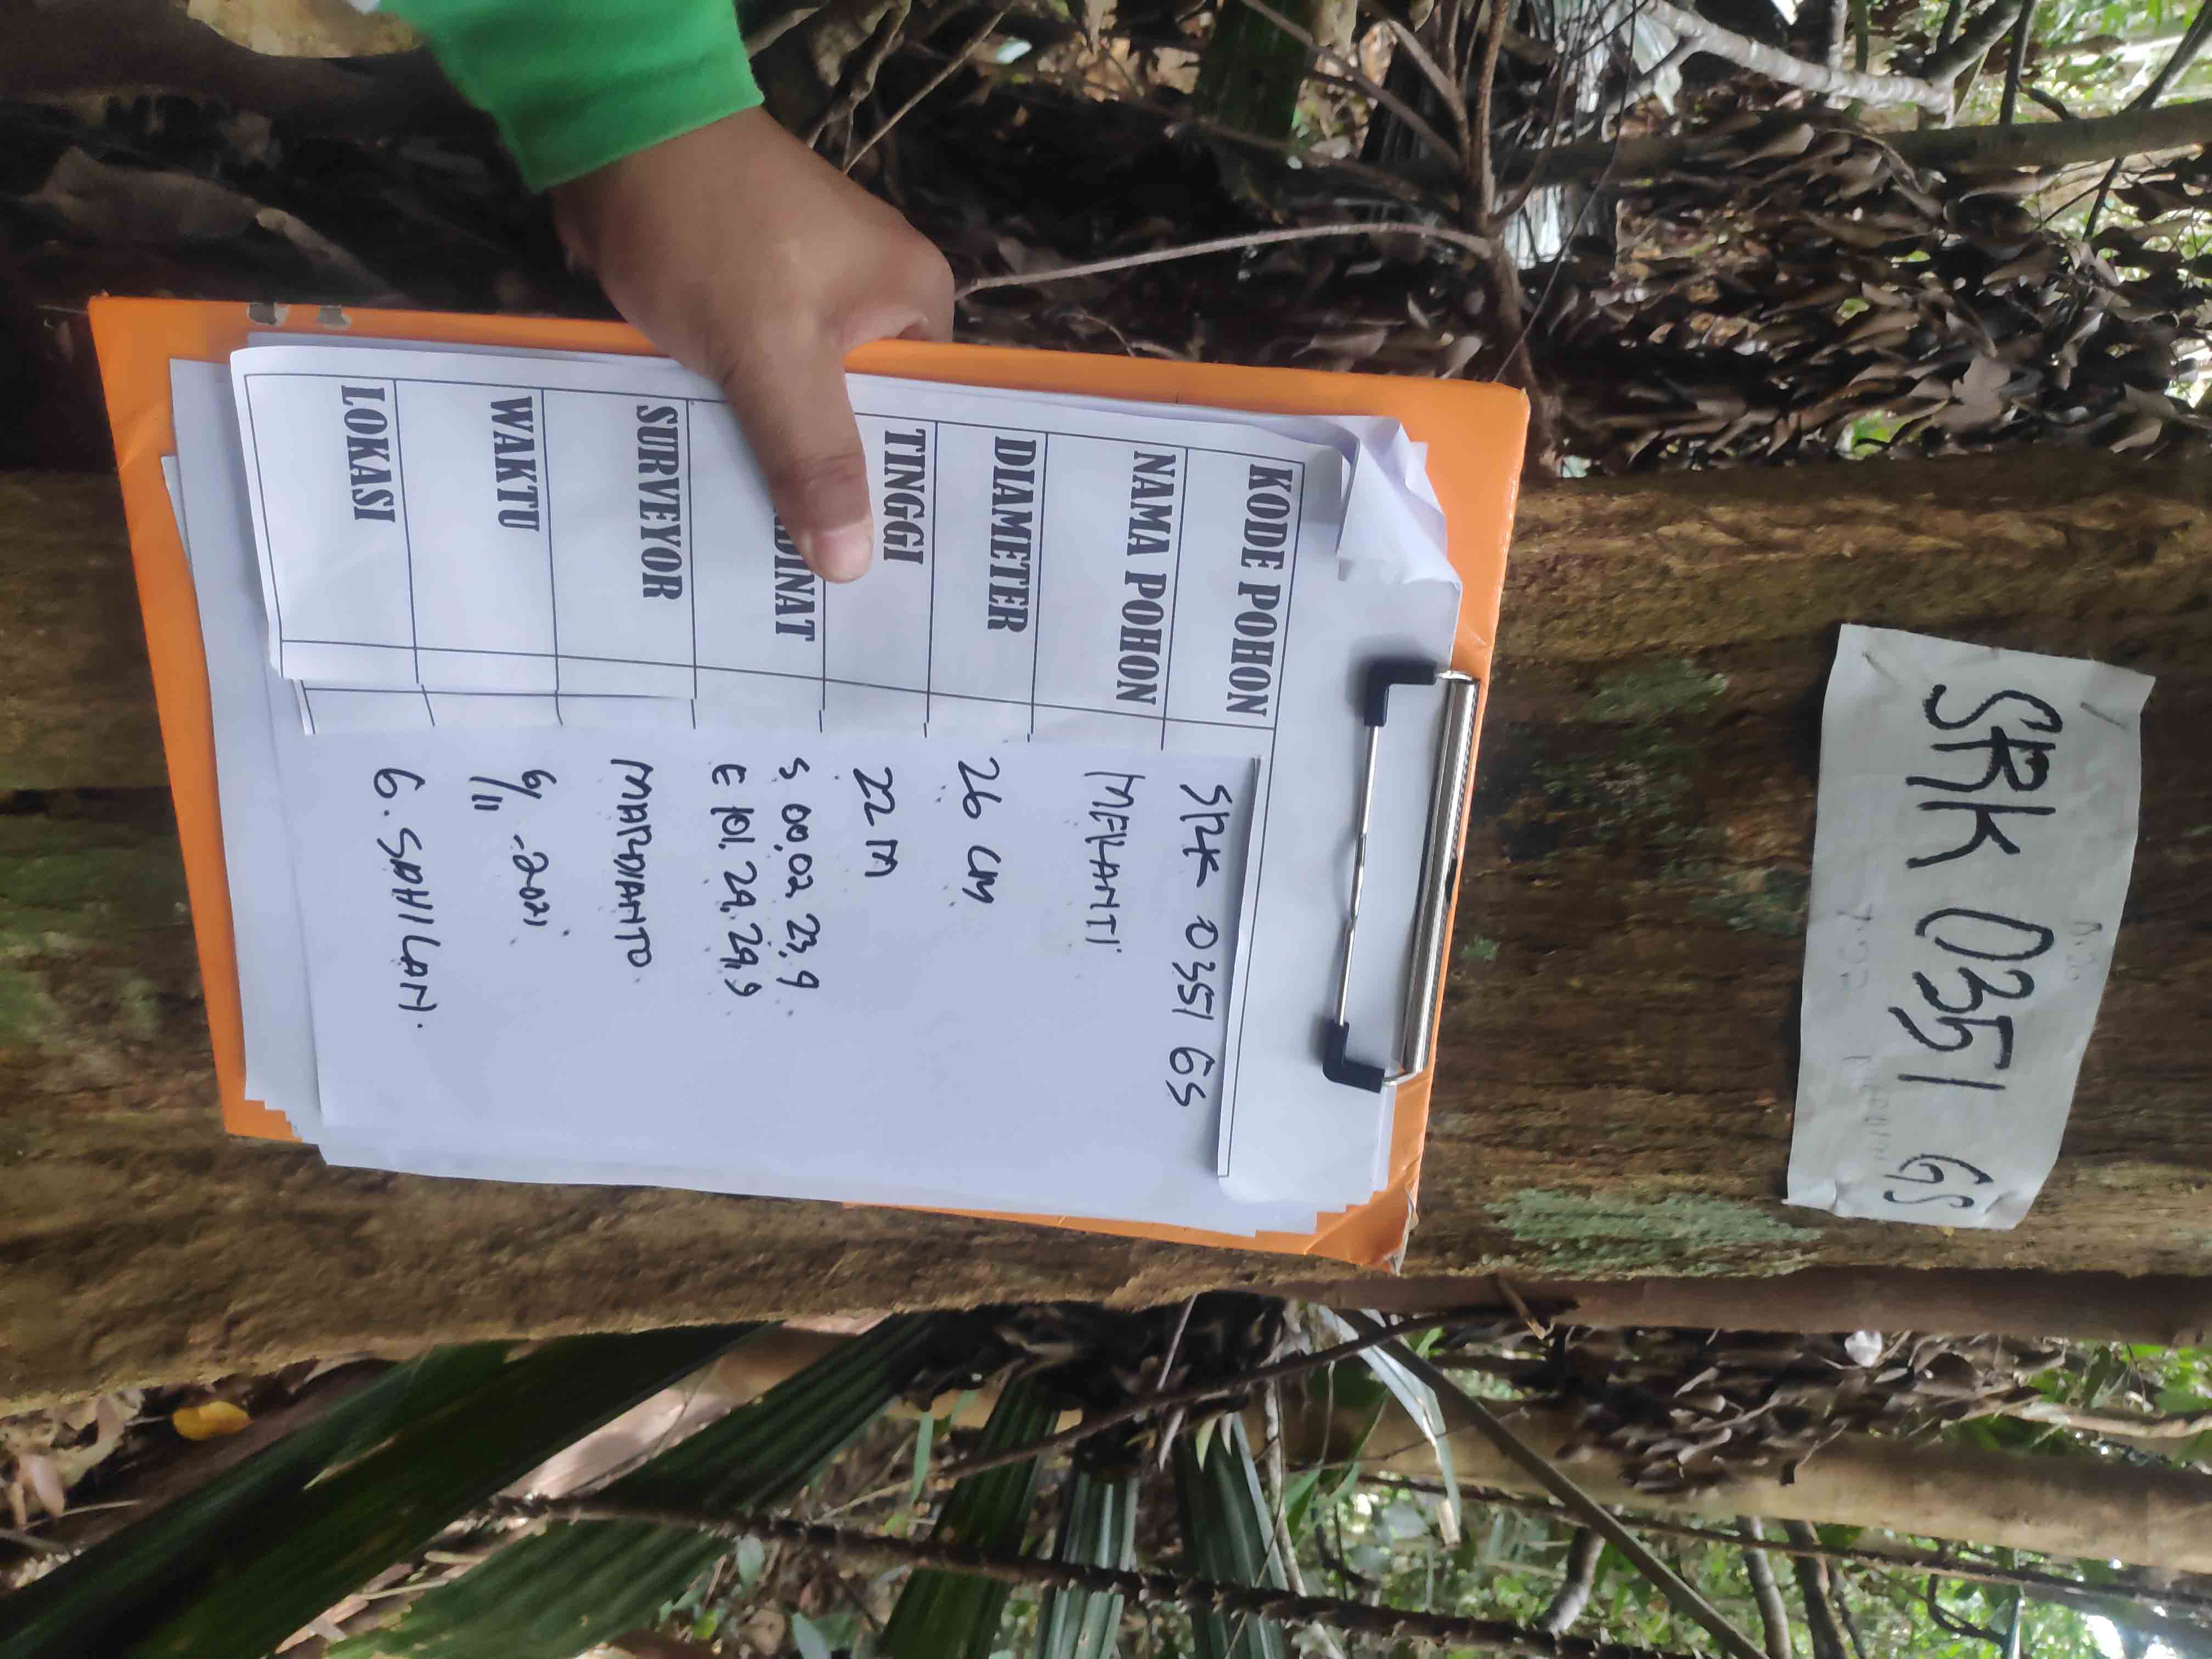 SRK 0351 GS
KODE POHON SRK 0351 GS
NAMA POHON MERANTI
DIAMETER 26 CM
TINGGI 22 M
S 00,02 23,9
E 101. 29. 29,9
SURVEYOR MARDIANTO
WAKTU 6/11 - 2021
LOKASI G. SAHILAN.